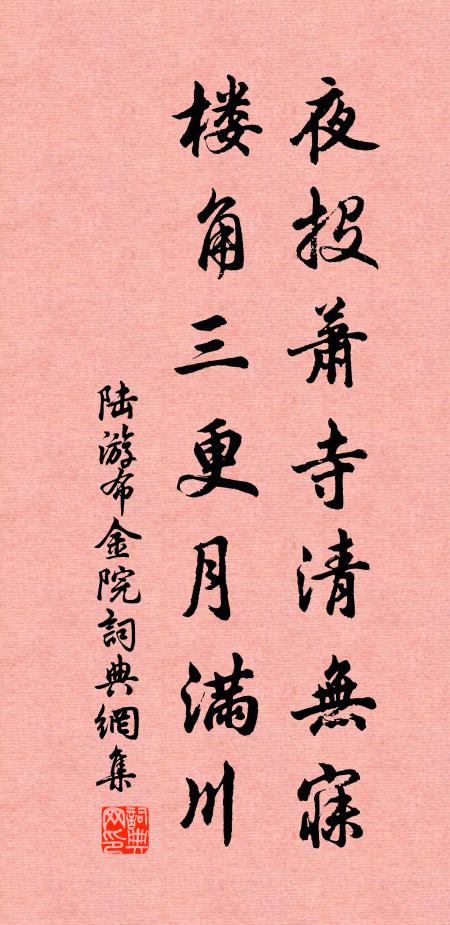 夜投萧寺清無寐
楼角三更月满川
陆游布金院詞典網集
詞典网印